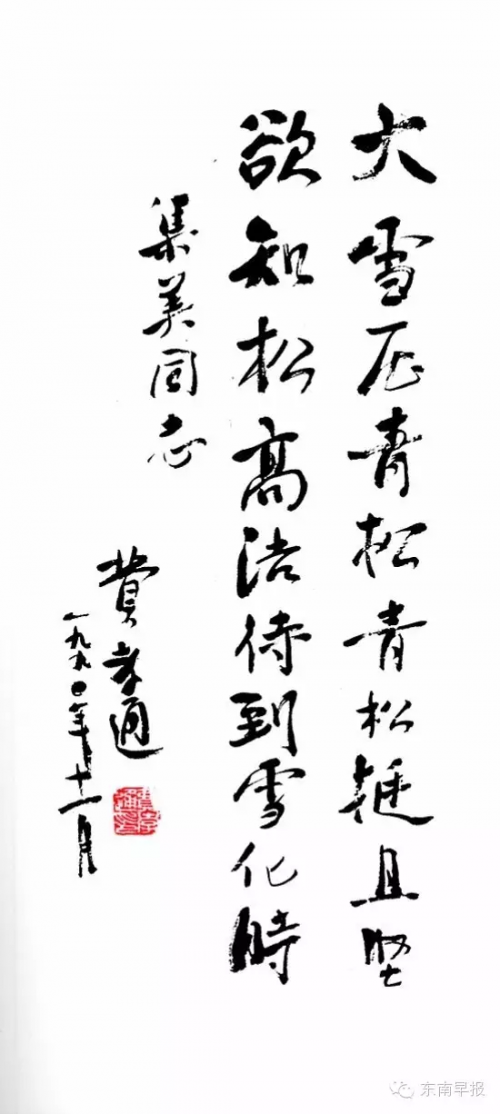 大雪压青松青松挺且坚
欲知松高洁待到雪化時
集美同志
費孝通
一九九〇年十一月
东南早报